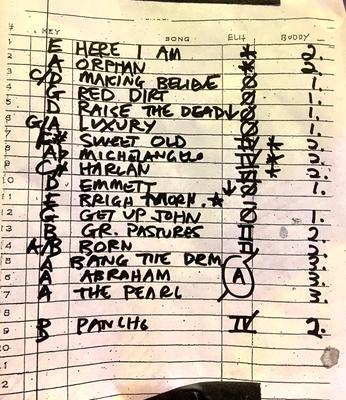 # KEY SONG ELH BUDDY
1 E HERE I AM ** 2.
2 A ORPHAN ** 2.
3 C/D MAKING BELIEVE 1.
4 G RED DIRT 1.
5 D RAISE THE DEAD ↓ 1.
6 G/A LUXURY 1.
7 F# SWEET OLD 2.
8 Ab MICHELANGELO 2.
9 C# HARLAN 2.
10 D EMMETT ↓ 1.
11 E BRIGH MORN. ★
12 G GET UP JOHN 1.
3 B GR. PASTURES 2
4 A/B BORN 2.
5 A BANG THE DRM 3.
6 A ABRAHAM A 3.
7 A THE PEARL 3.
8
9 D PANCHO IV 2.
0
1
2